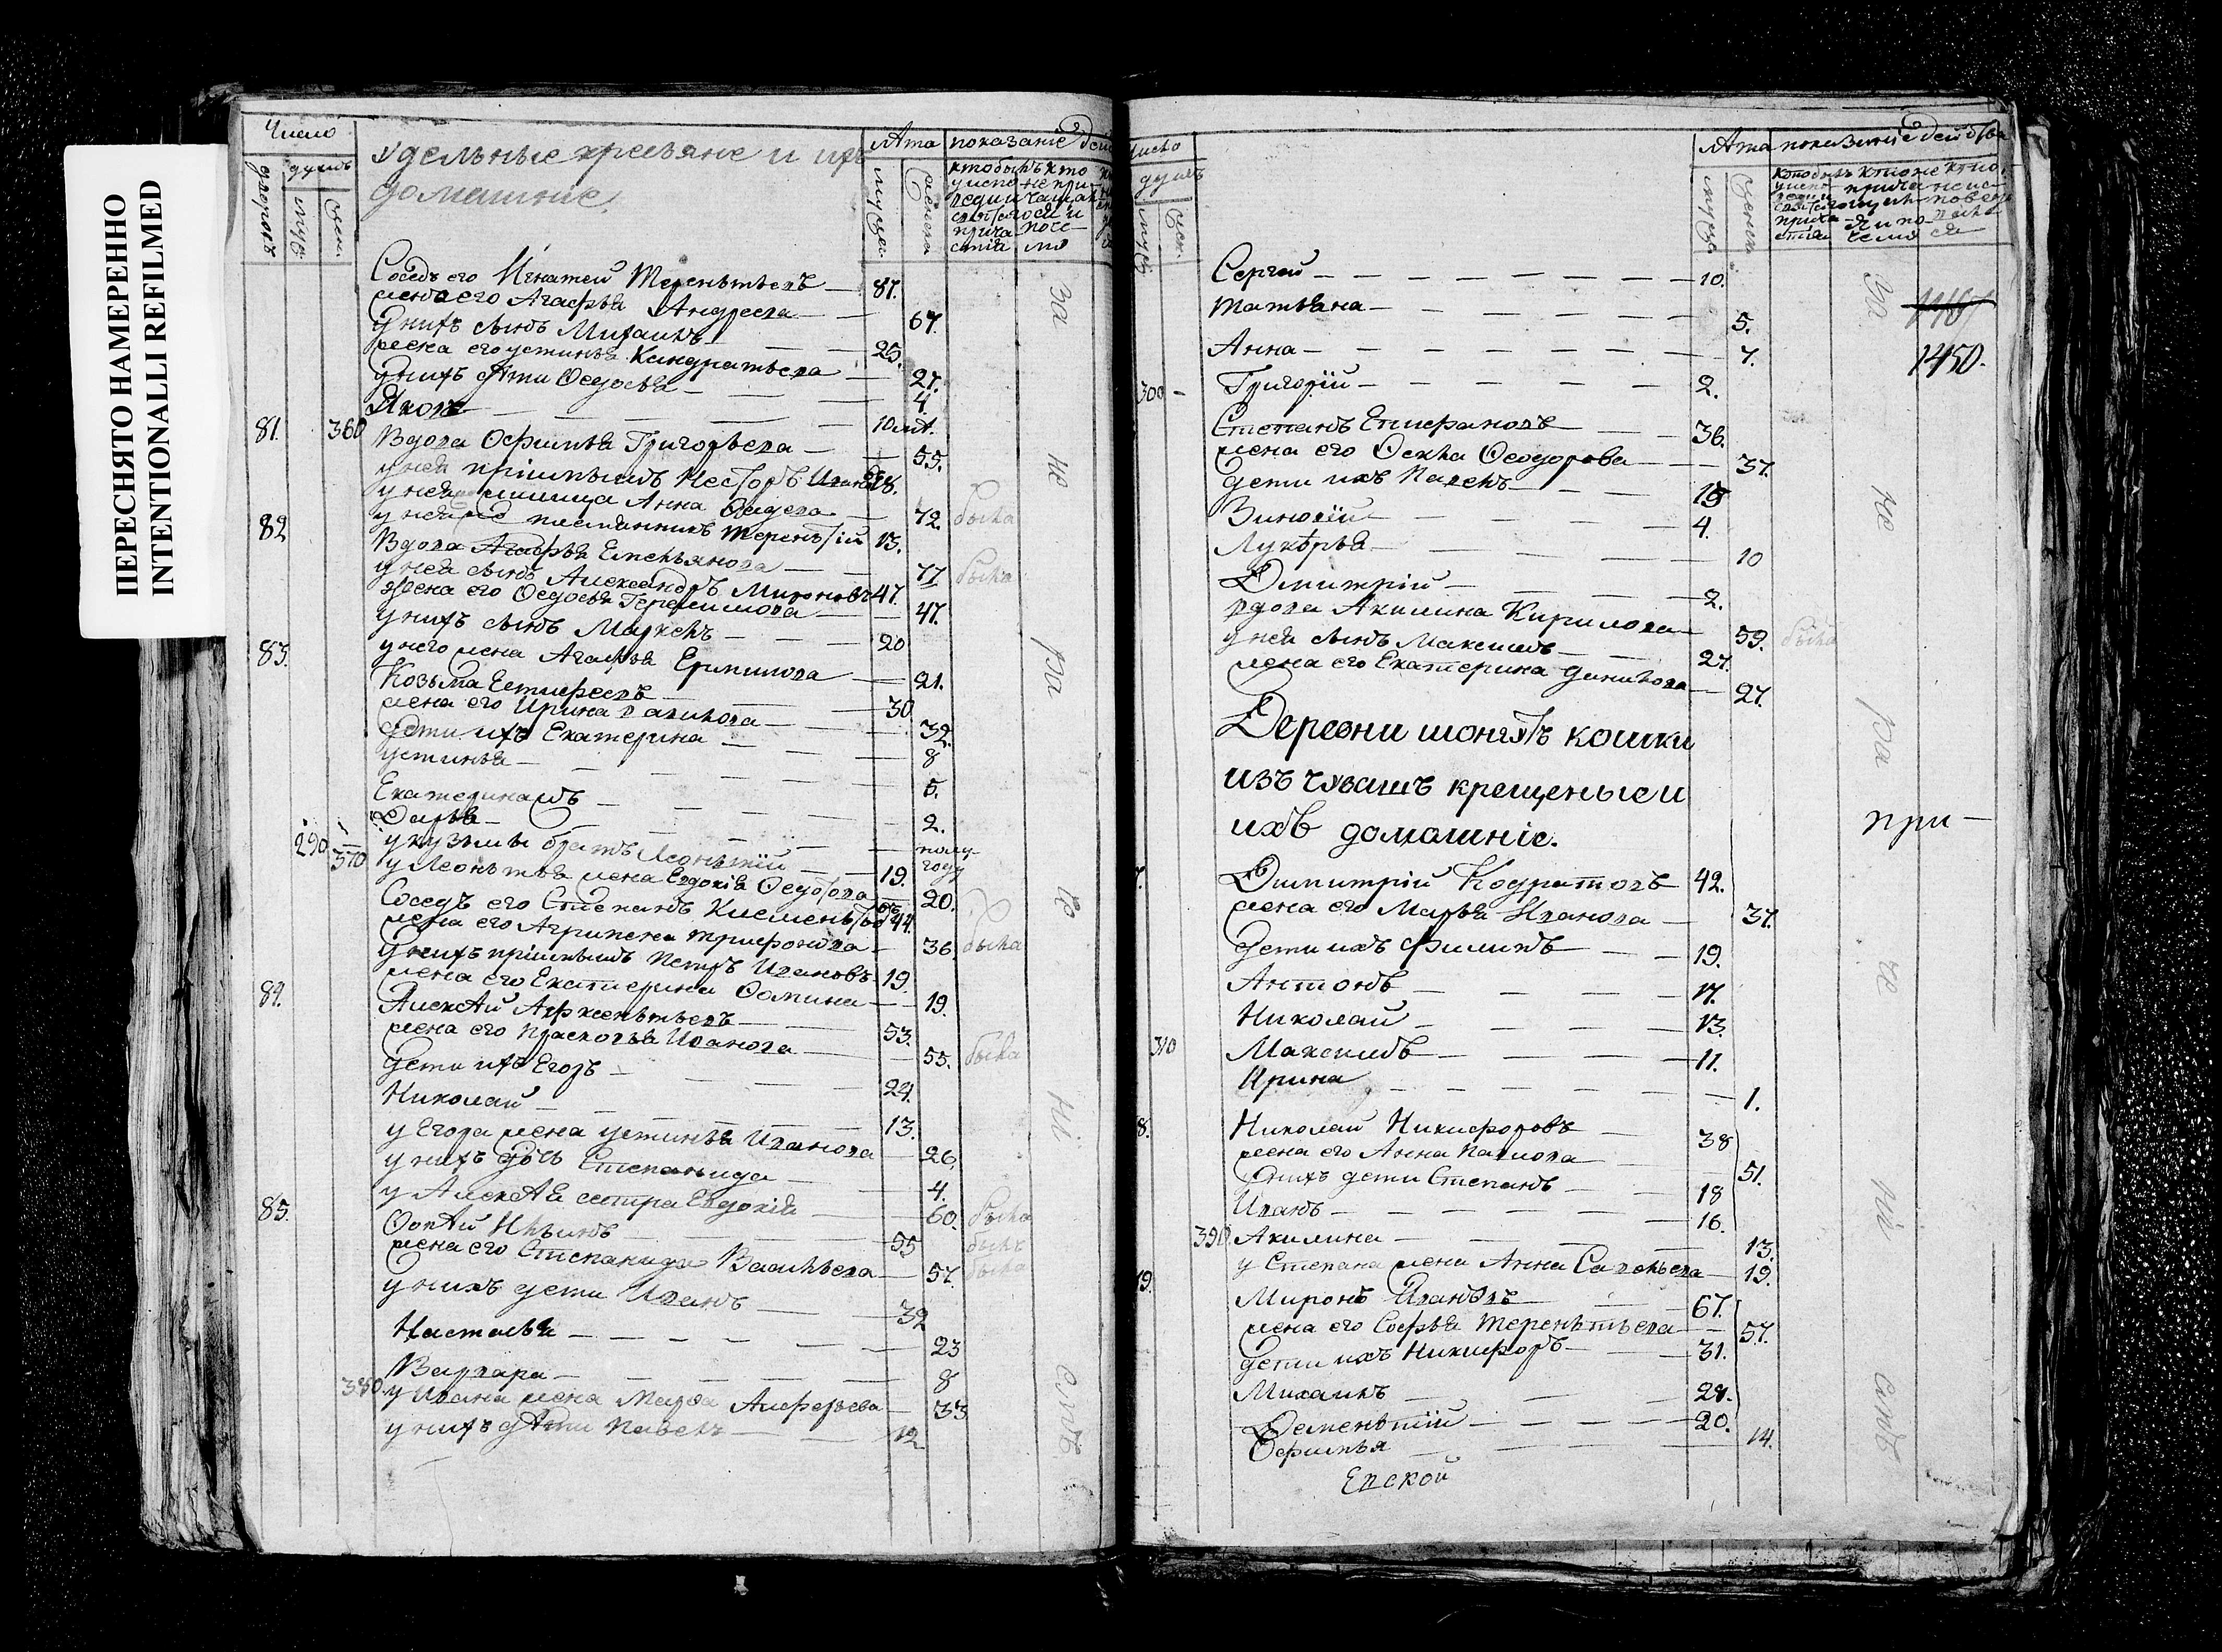 ПЕРЕСНЯТО НАМЕРЕННО
INTENTIONALLI REFILMED
Число
дворовъ
душъ
муж
жен
удельные хресьяне и ихъ
домашние.
лѣта
мужеска
женска
показание
кто былъ
у испо-
веди и
свят
прича-
стия
кто
не при-
чащал-
ся и
поче-
мо
Соседъ его Игнатей Терентьевъ 87.
жена его Агафья Андреева 67.
у нихъ сынъ Михаилъ 25.
жена его устинья Кандратьева 27.
у нихъ дѣти Федосья 4.
Яковъ 10
81. 360 Вдова Офимья Григорьева 55.
у ней пріимышъ Несторъ 18.
у ней Анна 72. была
у ней племянникъ Терентій 13.
82 Вдова Агафья Емельянова 77 была
у ней сынъ Александръ Мироновъ 47.
жена его Федосья Герасимова 47.
у нихъ сынъ Маркелъ 20
у него жена Агафья Ермилова 21.
83. Козьма Естифеевъ 30
жена его Ирина Павлова 32.
дети ихъ Екатерина 8
устинья 5.
Екатерина 2.
Дарья полу-
году
290. 370 у кузьмы братъ Леонтій 19.
у Леонтья жена Евдокія Федотова 20.
Соседъ его Степанъ 44
жена его Агрипена трифонова 36. была
у нихъ пріимышъ Петръ Ивановъ 19.
жена его Екатерина Фомина 19.
84. Алексѣй Афксентьевъ 53.
жена его Прасковья Иванова 55. была
дети ихъ Егоръ 24.
Николай 13.
у Егора жена устинья Иванова 26.
у нихъ дочь Степанида 4.
у Алексѣя сестра Евдокія 60. была
85. Фокѣй Ильинъ 55 былъ
жена его Степанида Васильева 57. была
у нихъ дети Иванъ 32
Настасья 23
Варвара 8
380. у Ивана жена Марфа Алферьева 33
у нихъ дѣти Павелъ 12.
число
душъ
муж
жен
лѣта
мужеска
женска
показание действа
Сергей 10.
Татьяна 5.
Анна 7.
300 Григорій 2.
1450.
Степанъ Епифановъ 36.
жена его Фекла Феодорова 37.
дети ихъ Павелъ 13
Зиновій 4.
Лукерья 10
Димитрій 2.
вдова Акилина Кирилова 59. была
у ней сынъ Максимъ 27.
жена его Екатерина данилова 27.
Деревни шонгутъ кошки
изъ чувашъ крещеные и
ихъ домашніе.
7. Димитрій Кодратовъ 42.
жена его Марья Иванова 37.
дети ихъ Филипъ 19.
Антонъ 17.
Николай 13.
310 Максимъ 11.
Ирина 1.
8. Николай Никифоровъ 38
жена его Анна Павлова 51.
у нихъ дети Степанъ 18
Иванъ 16.
390. Акилина 13.
у Степана жена Анна Савельева 19.
9. Миронъ Ивановъ 67.
жена его Софья Терентьева 57.
дети ихъ Никифоръ 31.
Михаилъ 24.
Дементій 20.
Офимья 14.
Епской